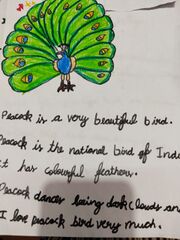 Peacock is a very beautiful bird.
Peacock is the national bird of Inda
it has colourful feathers.
Peacock dances seeing dark clouds and
I love peacock bird very much.